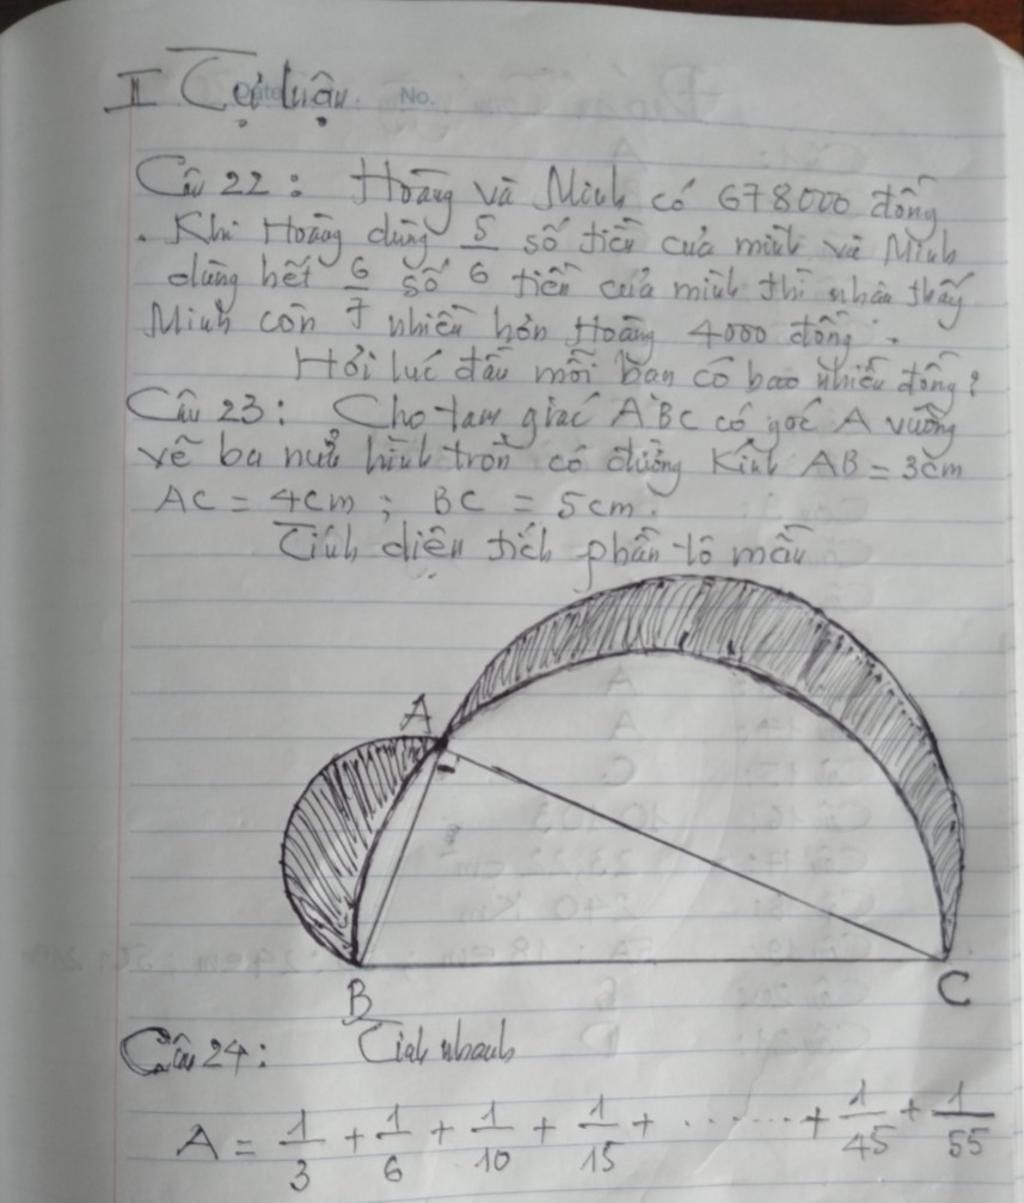 II Tự luận
Date No.
Câu 22: Hoàng và Minh có 678000 đồng
. Khi Hoàng dùng 5/6 số tiền của mình và Minh
dùng hết 6/7 số tiền của mình thì nhân thấy
Minh còn nhiều hơn Hoàng 4000 đồng.
Hỏi lúc đầu mỗi bạn có bao nhiêu đồng?
Câu 23: Cho tam giác ABC có góc A vuông
vẽ ba nửa hình tròn có đường kính AB = 3cm
AC = 4cm ; BC = 5cm.
Tính diện tích phần tô màu
A
B
C
Câu 24: Tính nhanh
A = 1/3 + 1/6 + 1/10 + 1/15 + ........ + 1/45 + 1/55